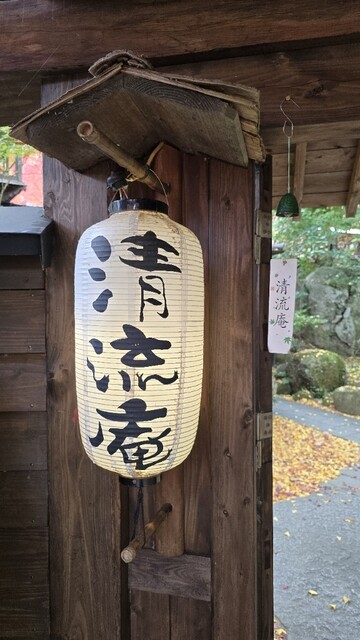 清流庵
清流庵